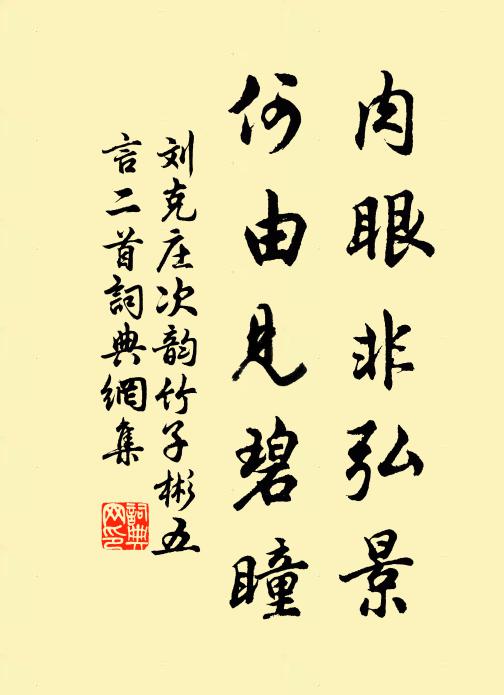 肉眼非弘景
何由見碧瞳
刘克庄次韵竹子彬五
言二首詞典網集
詞典
网印